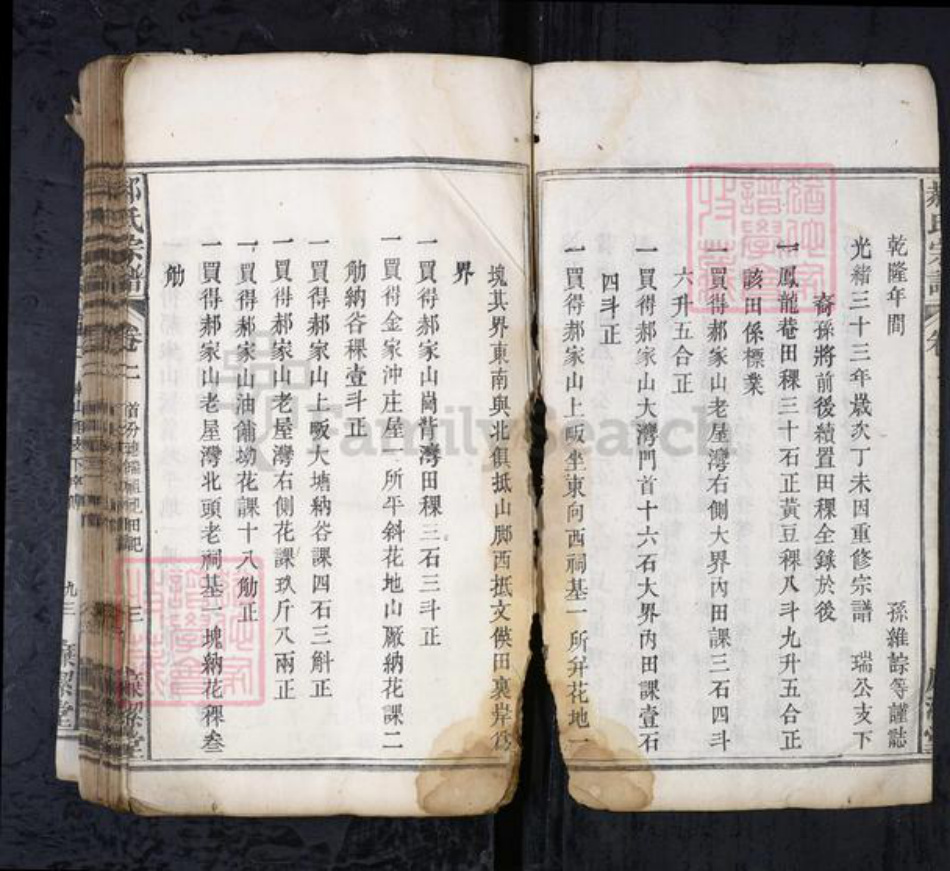 乾隆年間　孫維誴等謹誌
光緒三十三年歲次丁未因重修宗譜　瑞公支下
裔孫將前後續置田稞全錄於後
一鳳龍菴田稞三十石正黃豆稞八斗九升五合正
該田係標業
一買得郝家山老屋灣右側大界內田課三石四斗
六升五合正
一買得郝家山大灣門首十六石大界內田課壹石
四斗正
一買得郝家山上畈坐東向西祠基一所并花地一
塊其界東南與北俱抵山脚西抵文俟田裏岸為
界
一買得郝家山崗背灣田稞三石三斗正
一買得金家沖庄屋一所平斜花地山厰納花課二
觔納谷稞壹斗正
一買得郝家山上畈大塘納谷課四石三斛正
一買得郝家山老屋灣右側花課玖斤八兩正
一買得郝家山油舖坳花課十八觔正
一買得郝家山老屋灣北頭老祠基一塊納花稞叁
觔
郝氏宗譜　卷二　三
九三
FamilySearch
譜學會
收藏